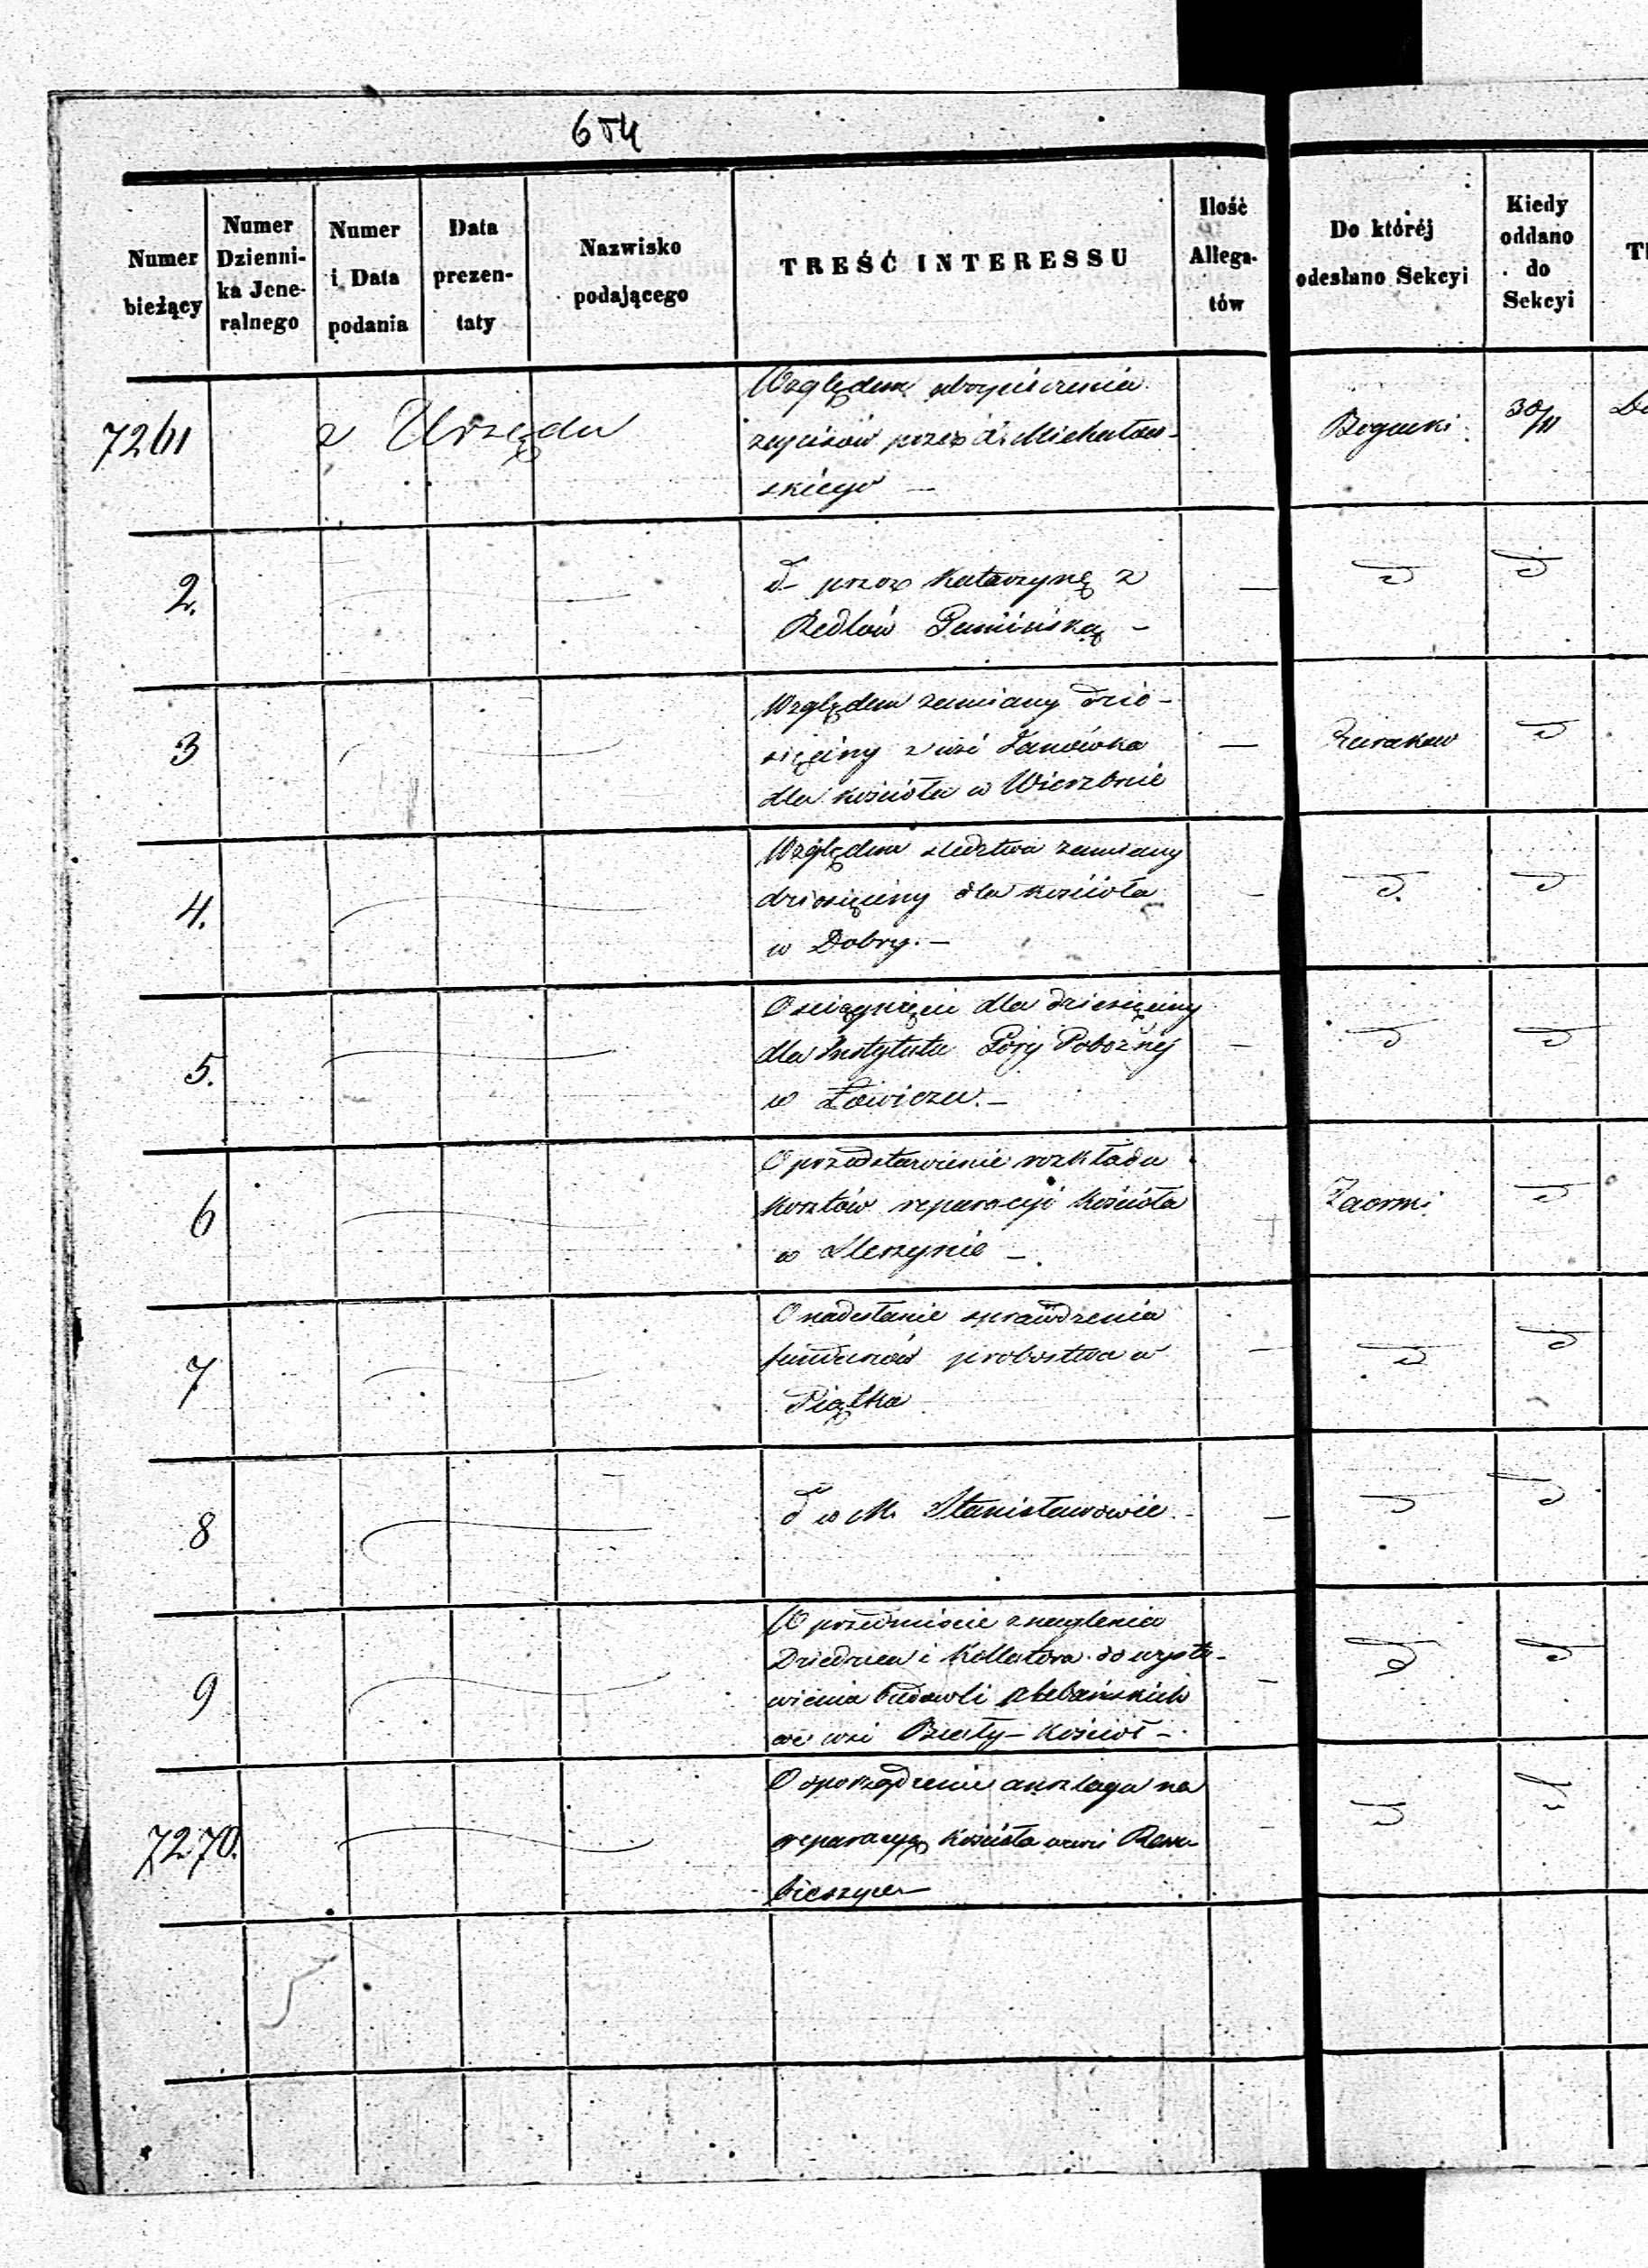 654
Numer bieżący
Numer Dzienni- ka Jene- ralnego
Numer i Data podania
Data prezen- taty
Nazwisko podającego
TREŚĆ INTERESSU
Ilość Allega- tów
Do któréj odesłano Sekcyi
Kiedy oddano do Sekcyi
7261 z Urzędu
Względem ubezpieczenia
zapisów przez Michałow-
skiego —
Bogucki 30/11
2.
d° przez Katarzynę z
Redlów —
3
Względem zamiany dzie-
sięciny z wsi Janówka
dla kościoła w Wierzbnie
4.
Względem śledztwa zamiany
dziesięciny dla kościoła
w Dobry. —
5.
O ściągnięcie dla dziesięciny
dla Instytutu Góry Pobożnej
w Łowiczu. —
6
O przedstawienie rozkładu
kosztów reparacyi kościoła
w Sleszynie —
7
O nadesłanie sprawdzenia
funduszów probostwa w
Piątku
8
d° w M. Stanisławowie. -
9
W przedmiocie znaglenia
Dziedzica i Kollatora do wysta-
wienia budowli plebańskich
we wsi Biały-Kościół -
7270.
O sporządzenie anszlagu na
reparacyę kościoła w wsi Rem-
bieszyce —